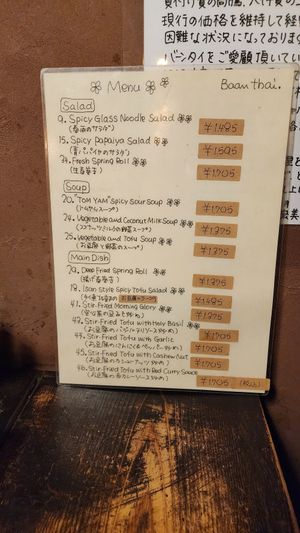 貸付け賃の高騰、人件費の上
現行の価格を維持して経
困難な状況になっておりま
バーンタイをご愛顧頂いてい
Menu
Baan thai.
Salad
9. Spicy Glass Noodle Salad
(春雨のサラダ)
¥1485
15. Spicy Papaiya Salad
(青パパイヤのサラダ)
¥1595
34. Fresh Spring Roll
(生春巻き)
¥1705
Soup
20. "TOM YAM" Spicy Sour Soup
(トムヤムスープ)
¥1705
24. Vegetable and Coconut Milk Soup
(ココナッツミルクの野菜スープ)
¥1375
25. Vegetable and Tofu Soup
(お豆腐と野菜のスープ)
¥1375
Main Dish
29. Deep Fried Spring Roll
(揚げ春巻き)
¥1375
18. Isan Style Spicy Tofu Salad
¥1485
41. Stir-Fried Morning Glory
(空心菜の豆みそ炒め)
¥1375
42. Stir-Fried Tofu with Holy Basil
(お豆腐のバジル炒め)
¥1705
44. Stir-Fried Tofu with Garlic
(お豆腐のにんにく&ペッパー炒め)
¥1705
45. Stir-Fried Tofu with Cashew Nut
(お豆腐のカシューナッツ炒め)
¥1705
46. Stir-Fried Tofu with Red Curry Sauce
(お豆腐の赤カレーソース炒め)
¥1705 (税込)